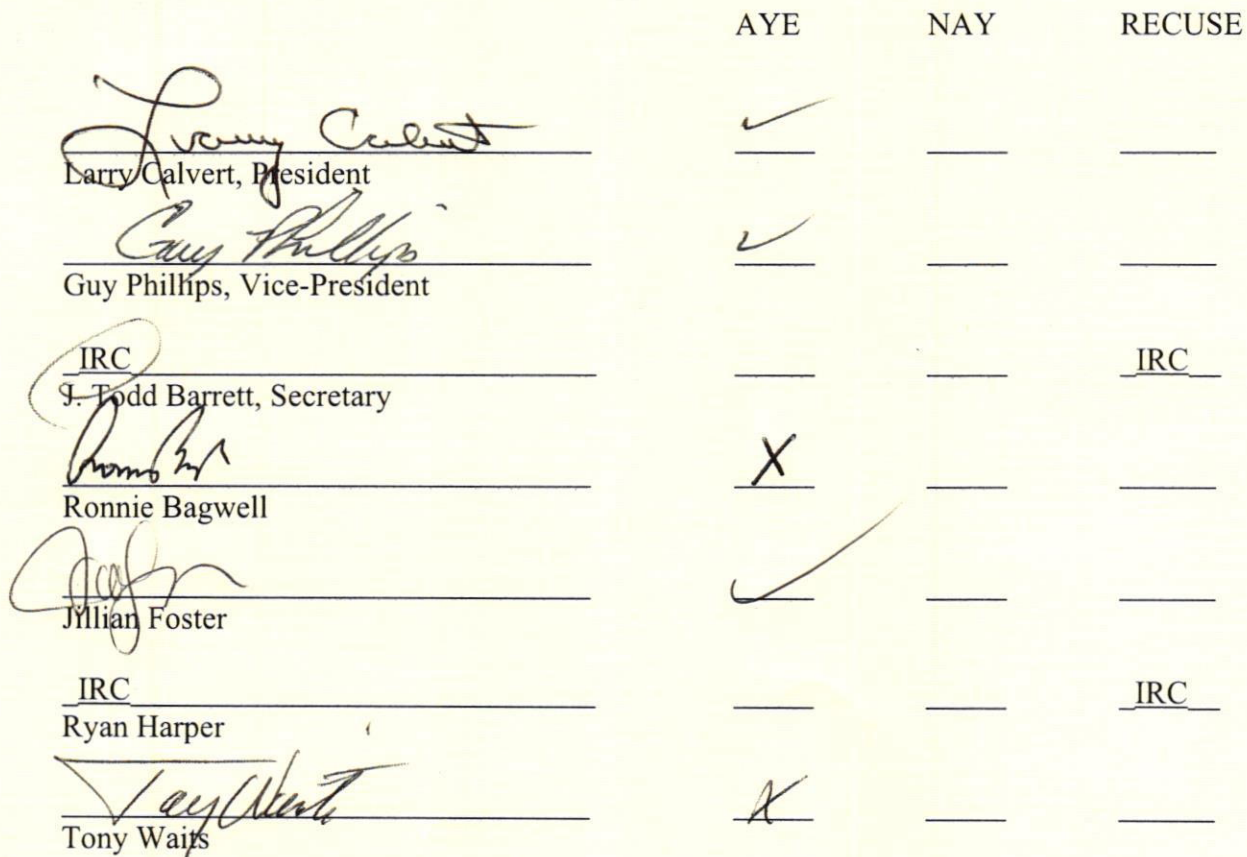 AYE NAY RECUSE
Larry Calvert ✓
Larry Calvert, President
Guy Phillips ✓
Guy Phillips, Vice-President
IRC IRC
J. Todd Barrett, Secretary
X
Ronnie Bagwell
✓
Jillian Foster
IRC IRC
Ryan Harper
Tony Waits X
Tony Waits